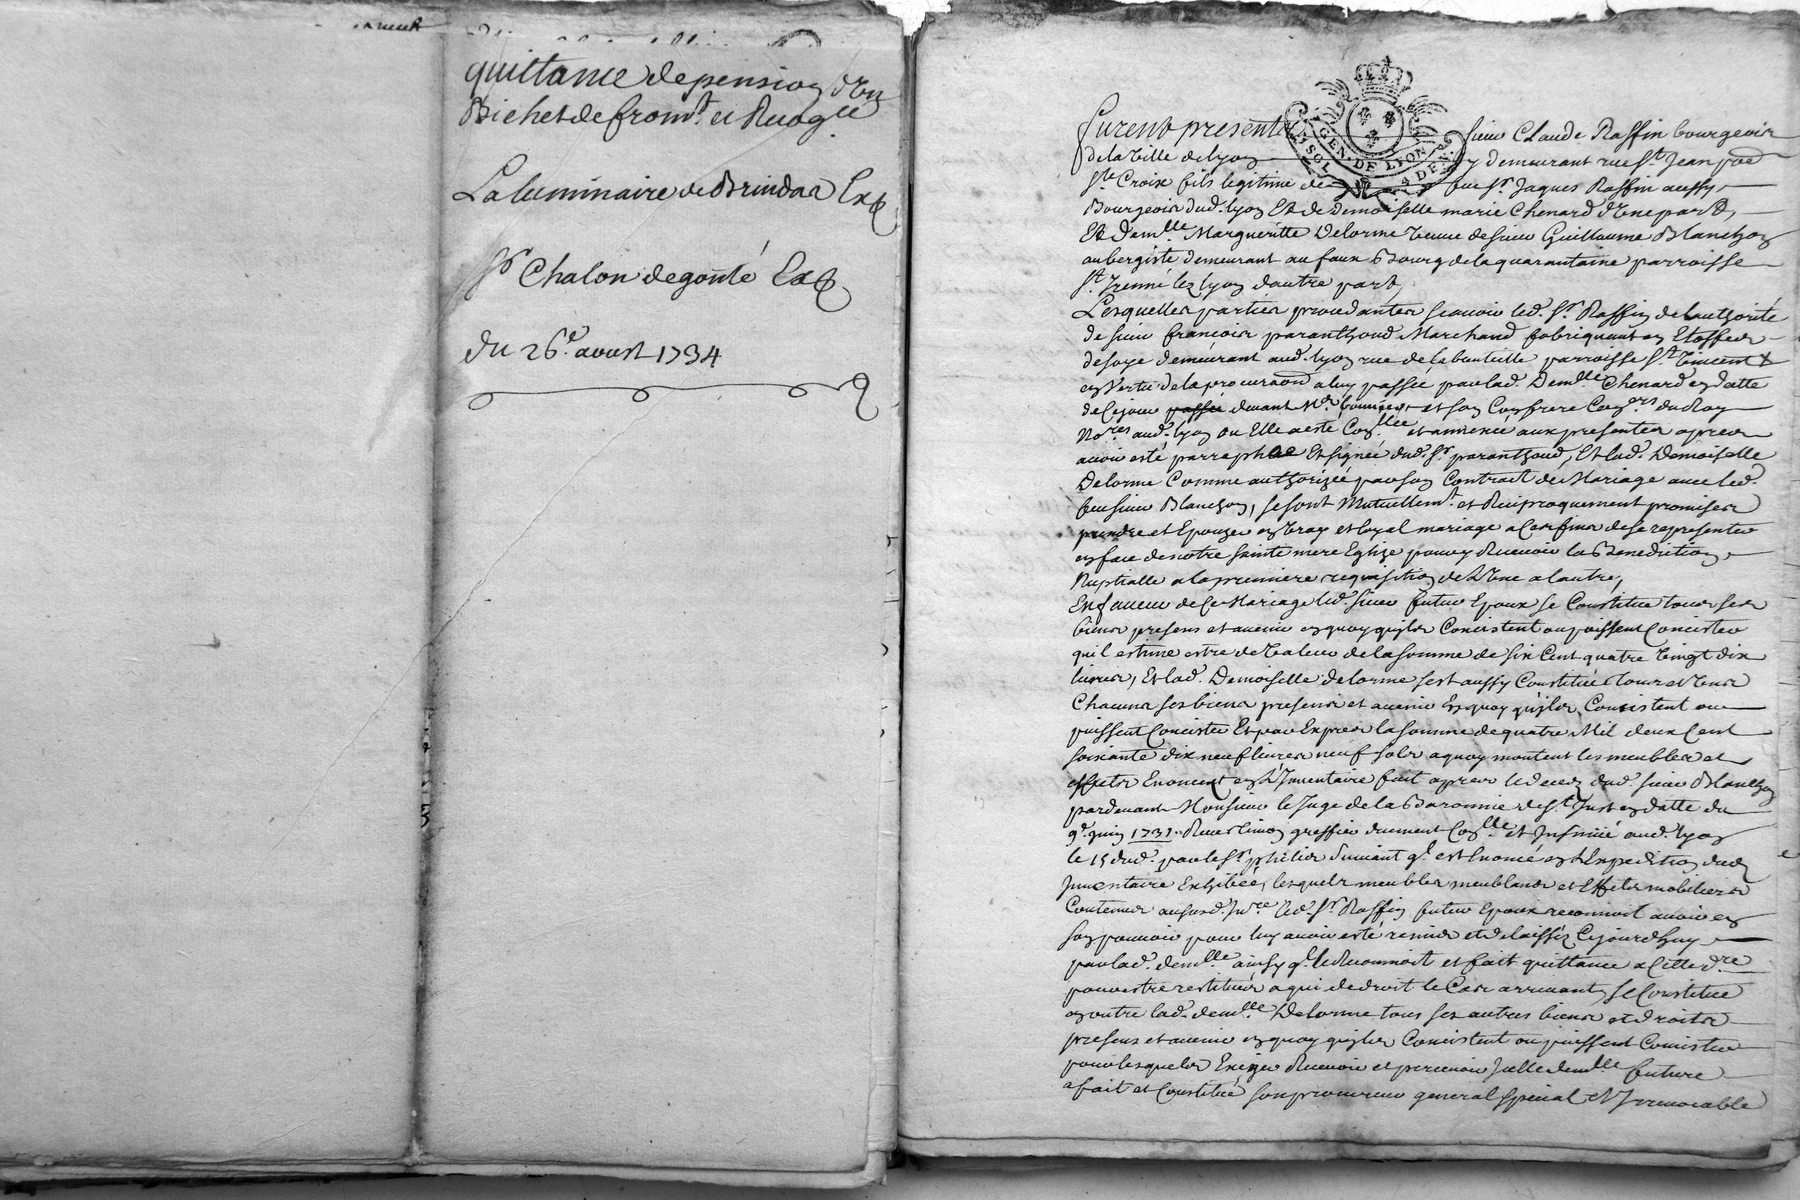 quittance de pension d'un
Bichet de from.t et Ruage
La luminaire de Brindas Exp
Sr Chalon de gonté Exp
du 26.e aoust 1734
GEN. DE LYON
4 DEN.
furent presents sieur Claude Raffin bourgeois
de la Ville de lyon y demeurant rue St. Jean par
Ste Croix fils legitime de feu Sr. Jaques Raffin aussy
Bourgeois dud. lyon Et de Demoiselle marie Chenard d'Une part,
Et Demlle Margueritte Delorme Veuve de sieur Guillaume Blanchon
aubergiste demeurant au faux Bourg de la quarantaine parroisse
St. Irenné lez lyon d'autre part,
Lesquelles parties procedantes scauoir led. Sr. Raffin de l'authorité
de sieur francois paranthoud Marchand fabriquant en Etoffes
de soye demeurant aud. lyon rue de la bouteille parroisse St. Vincent &
en Vertu de la procuraon a luy passée par lad. Demlle Chenard en datte
de Cejour passée devant Me et son Confrere Coners du Roy
Nores aud. lyon ou Elle a esté Conllée et annexée aux presentes apres
auoir esté parraphée Et signée dud. Sr paranthoud, Et lad. Demoiselle
Delorme Comme authorizée par son Contract de Mariage auec led.
feu sieur Blanchon, se sont Mutuellemt. et Reciproquement promis se
prendre et Epouzer en Vray et loyal mariage a Ces fins de se representer
en face de notre sainte mere Eglize pour y Receuoir la Benediction
Nuptialle a la premiere requisition de L'Une a l'autre,
En faueur de Ce Mariage led. sieur futur Epoux se Constitue tous ses
biens presens et auenir en quoy qu'ils Concistent ou puissent Concister
qu'il estime estre de Valeur de la somme de six Cent quatre Vingt dix
liures, Et lad. Demoiselle delorme s'est aussy Constitué tous et Uns
Chacuns ses biens presens et auenir En quoy qu'ils Concistent ou
puissent Concister Et par Expres la somme de quatre Mil deux Cent
soixante dix neuf liures neuf sols a quoy montent les meubles et
effets Enoncent en L'Inuentaire fait apres le deced dud. sieur Blanchon
pardeuant Monsieur le Juge de la Baronnie de St. Just en datte du
9e. juin 1731. Receu Simon greffier duement Conlle et Insinué aud. lyon
le 15 dud. par le Sr. philier suiuant ql. est Enoncé en L'Expedition dud.
Inuentaire Exhibée, lesquels meubles meublans et Effets mobiliers
Contenus aususd. Inre led. Sr. Raffin futur Epoux reconnoit auoir en
son pouuoir pour luy auoir esté remis et delaissés Cejourd'huy
par lad. demlle ainsy ql. le Reconnoit et fait quittance a Cette dre
pour estre restitués a qui de droit le Cas arriuant, se Constitue
en outre lad. demlle Delorme tous ses autres biens et droits
presens et auenir en quoy qu'ils Concistent ou puissent Concister
pour lesquels Exiger Receuoir et perceuoir Icelle demlle future
a fait et Constitué son procureur general special et Irreuocable